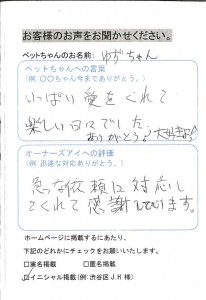 お客様のお声をお聞かせください。
ペットちゃんのお名前: ゆずちゃん
ペットちゃんへの言葉
(例 〇〇ちゃん今までありがとう。)
いっぱい愛をくれて
楽しい日々でした
ありがとう♡大好きよ♡
オーナーズアイへの評価
(例 迅速な対応ありがとう。)
急な依頼に対応し
てくれて感謝しています。
ホームページに掲載するにあたり、
下記のどれかにチェックをお願いいたします。
□実名掲載 □匿名掲載
☑イニシャル掲載(例:渋谷区 J.H 様)